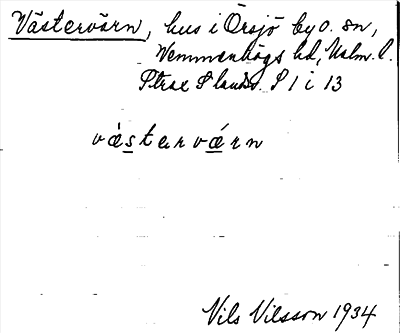 Västervärn, hus i Örsjö by o. sn,
Vemmenhögs hd, Malm. l.
Strax S landsv. S 1 i 13
västervärn
Nils Nilsson 1934